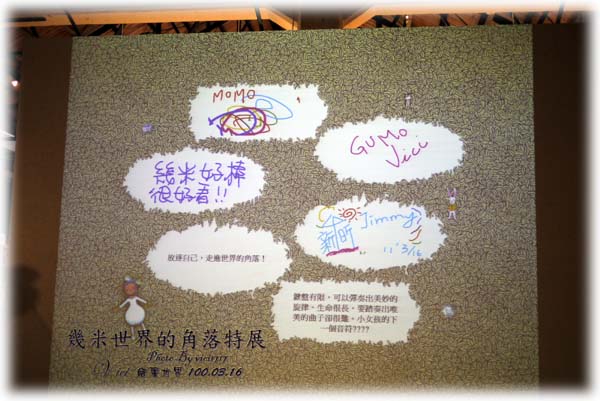 MOMO
GUMO
Vici
幾米好棒
很好看!!
Jimmy
11' 3/16
放逐自己,走進世界的角落!
鍵盤有限,可以彈奏出美妙的
旋律,生命很長,要踏奏出唯
美的曲子卻很難,小女孩的下
一個音符????
幾米世界的角落特展
Photo By vici1317
Vici 繪畫世界 100.03.16